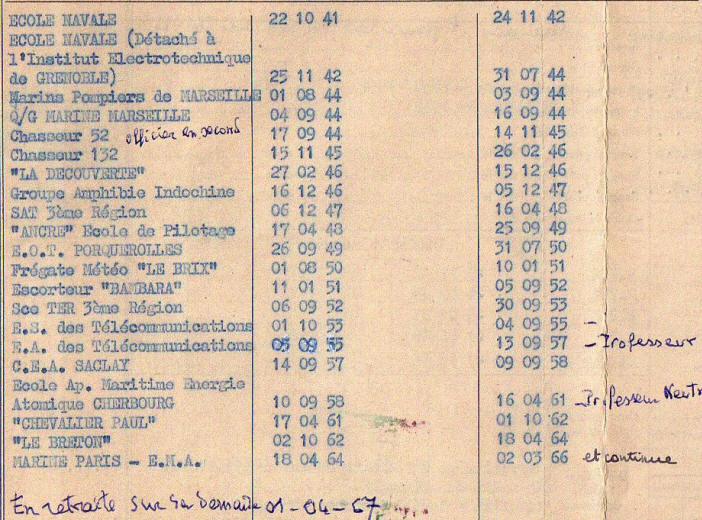 ECOLE NAVALE 22 10 41 24 11 42
ECOLE NAVALE (Détaché à
l'Institut Electrotechnique
de GRENOBLE) 25 11 42 31 07 44
Marins Pompiers de MARSEILLE 01 08 44 03 09 44
Q/G MARINE MARSEILLE 04 09 44 16 09 44
Chasseur 52 officier en second 17 09 44 14 11 45
Chasseur 132 15 11 45 26 02 46
"LA DECOUVERTE" 27 02 46 15 12 46
Groupe Amphibie Indochine 16 12 46 05 12 47
SAT 3ème Région 06 12 47 16 04 48
"ANCRE" Ecole de Pilotage 17 04 48 25 09 49
E.O.T. PORQUEROLLES 26 09 49 31 07 50
Frégate Météo "LE BRIX" 01 08 50 10 01 51
Escorteur "BAMBARA" 11 01 51 05 09 52
Sce TER 3ème Région 06 09 52 30 09 53
E.S. des Télécommunications 01 10 53 04 09 55 -
E.A. des Télécommunications 05 09 55 13 09 57 - Professeur
C.E.A. SACLAY 14 09 57 09 09 58
Ecole Ap. Maritime Energie
Atomique CHERBOURG 10 09 58 16 04 61 - Professeur
"CHEVALIER PAUL" 17 04 61 01 10 62
"LE BRETON" 02 10 62 18 04 64
MARINE PARIS - E.M.A. 18 04 64 02 03 66 et continue
En retraite sur sa demande 01-04-67